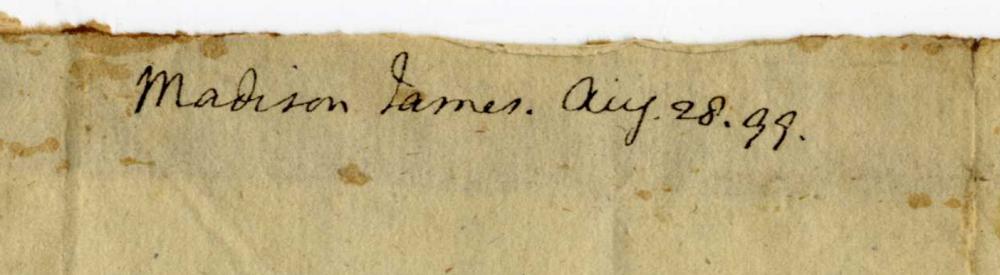 Madison James. Aug. 28. 99.